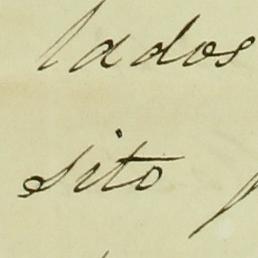 lados
sito